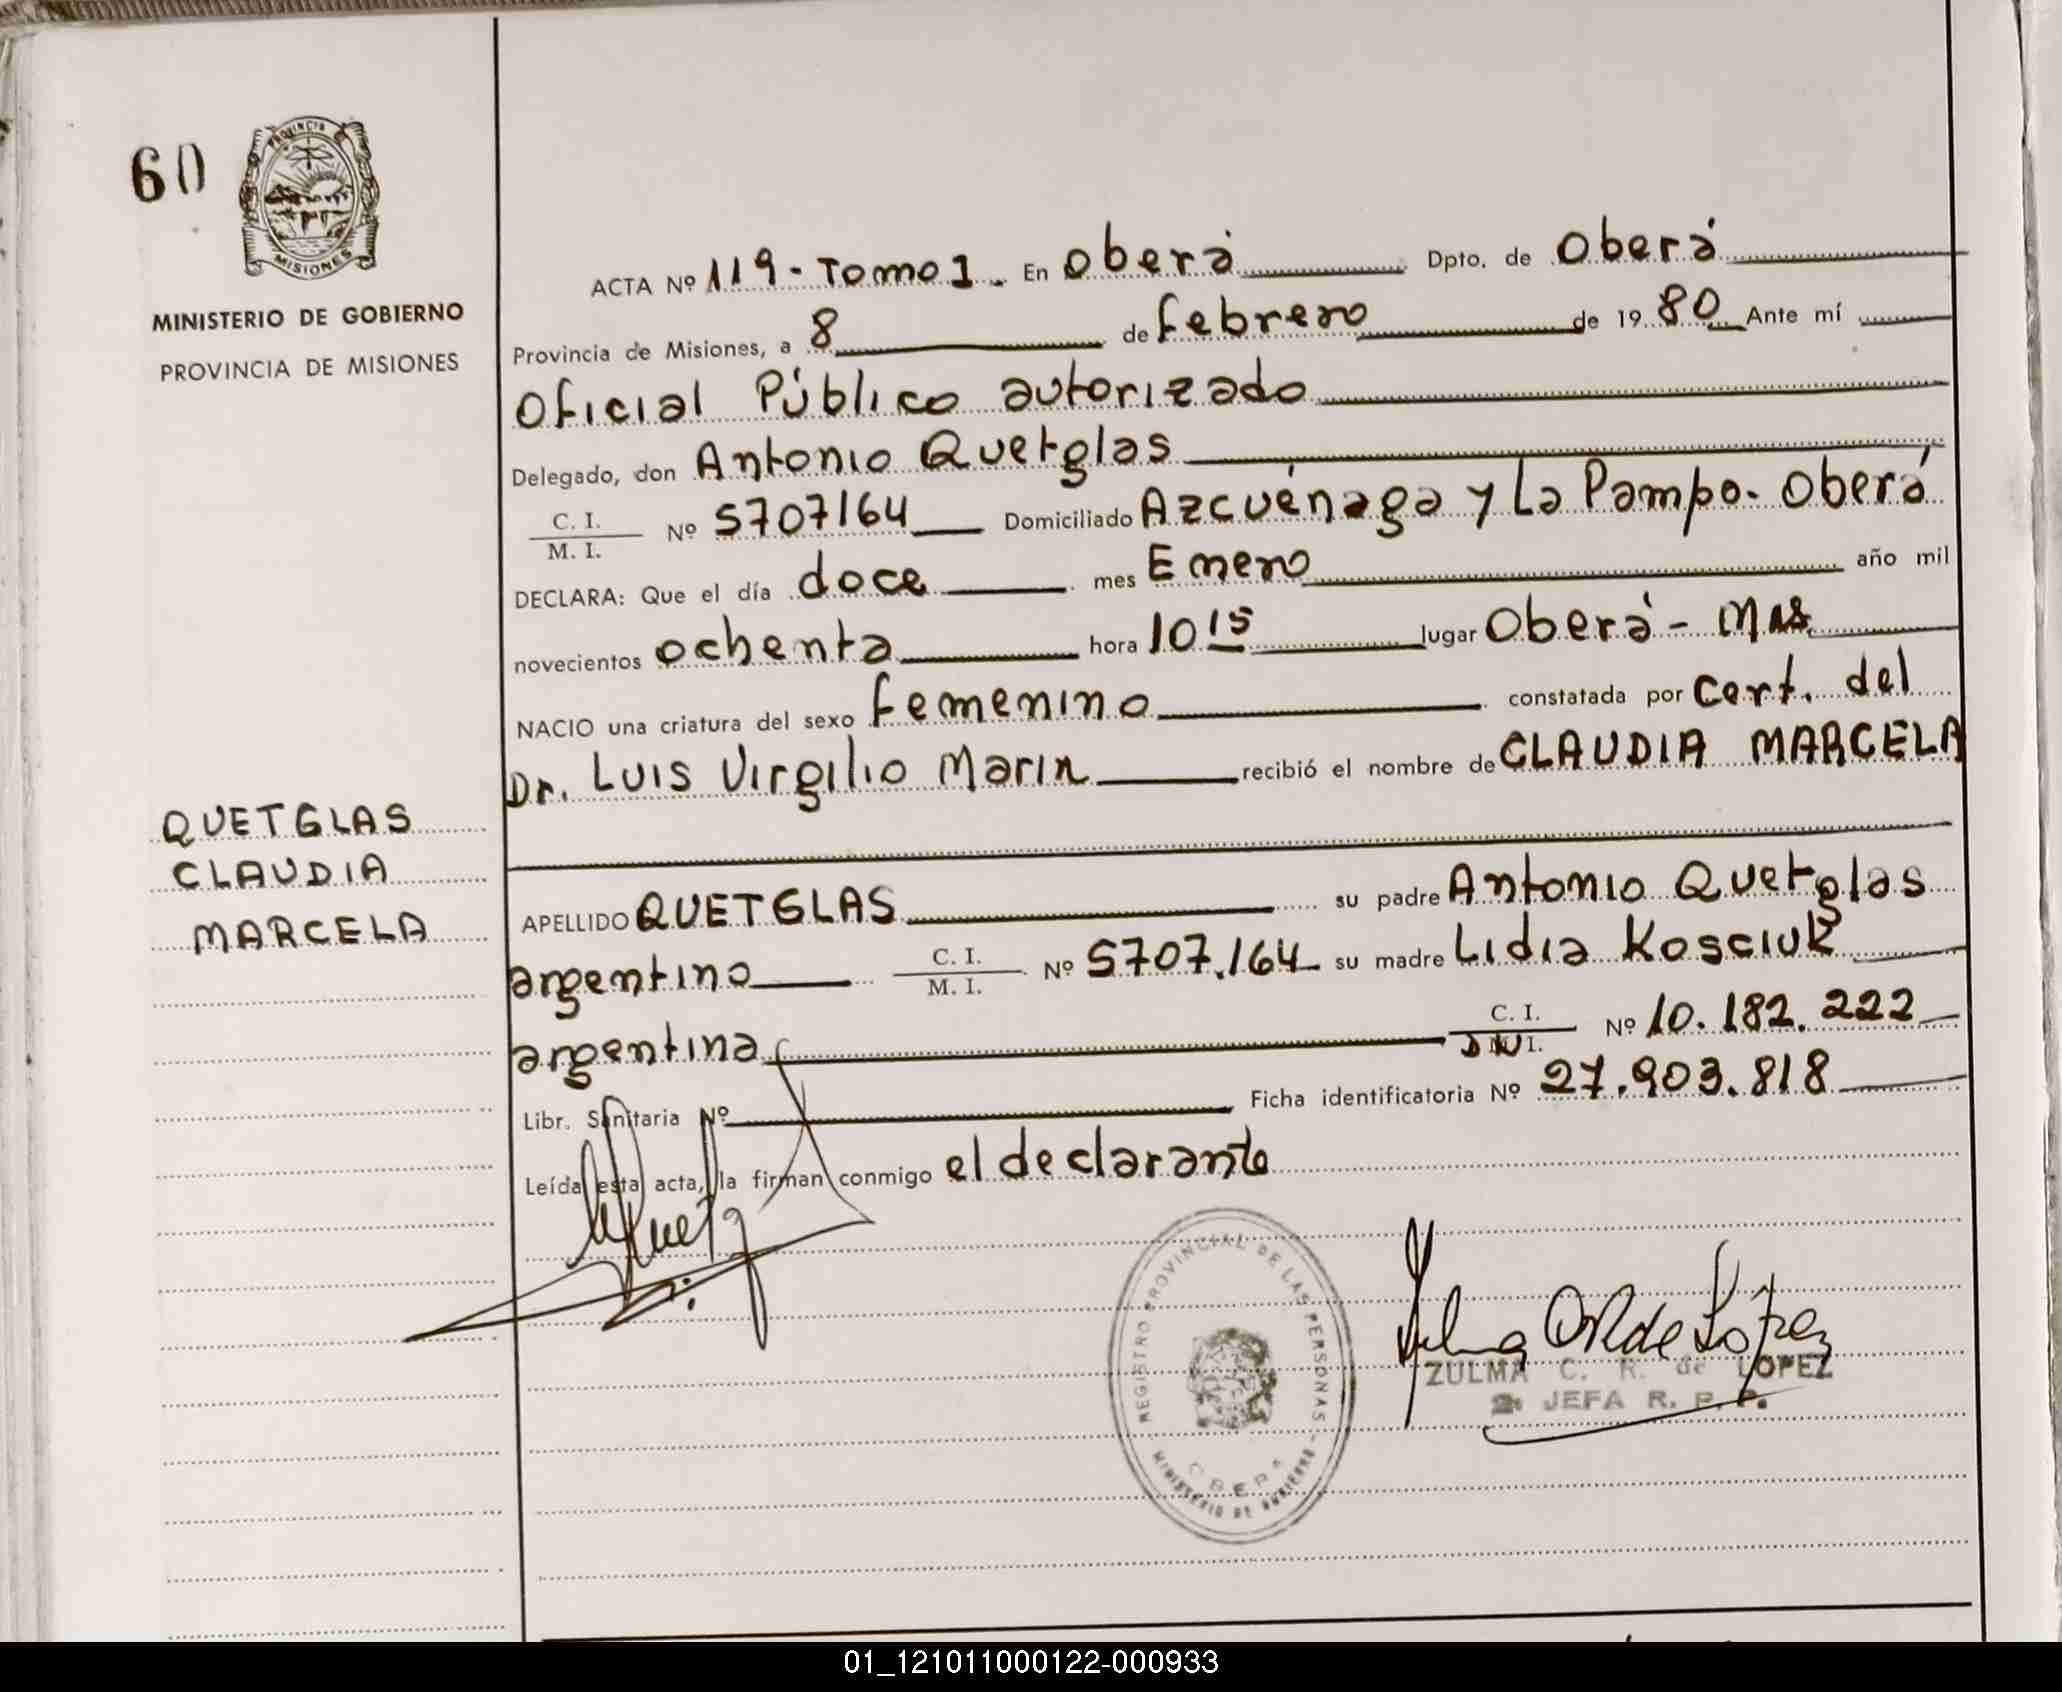 60
PROVINCIA
MISIONES
MINISTERIO DE GOBIERNO
PROVINCIA DE MISIONES
QUETGLAS
CLAUDIA
MARCELA
ACTA Nº 119 - Tomo 1 - En Oberá Dpto. de Oberá
Provincia de Misiones, a 8 de febrero de 1980 Ante mí
Oficial Público autorizado
Delegado, don Antonio Quetglas
C. I.
M. I. Nº 5707164 Domiciliado Azcuénaga y La Pampa - Oberá
DECLARA: Que el día doce mes Enero año mil
novecientos ochenta hora 10 15 lugar Oberá - Mns.
NACIO una criatura del sexo femenino constatada por cert. del
Dr. Luis Virgilio Marin recibió el nombre de CLAUDIA MARCELA
APELLIDO QUETGLAS su padre Antonio Quetglas
argentino C. I.
M. I. Nº 5707.164 su madre Lidia Kosciuk
argentina C. I.
DNI. Nº 10.182.222
Libr. Sanitaria Nº Ficha identificatoria Nº 27.903.818
Leída esta acta, la firman conmigo el declarante
REGISTRO PROVINCIAL DE LAS PERSONAS
OBERA
MINISTERIO DE GOBIERNO
ZULMA C. R. de LOPEZ
2ª JEFA R. P. P.
01_121011000122-000933